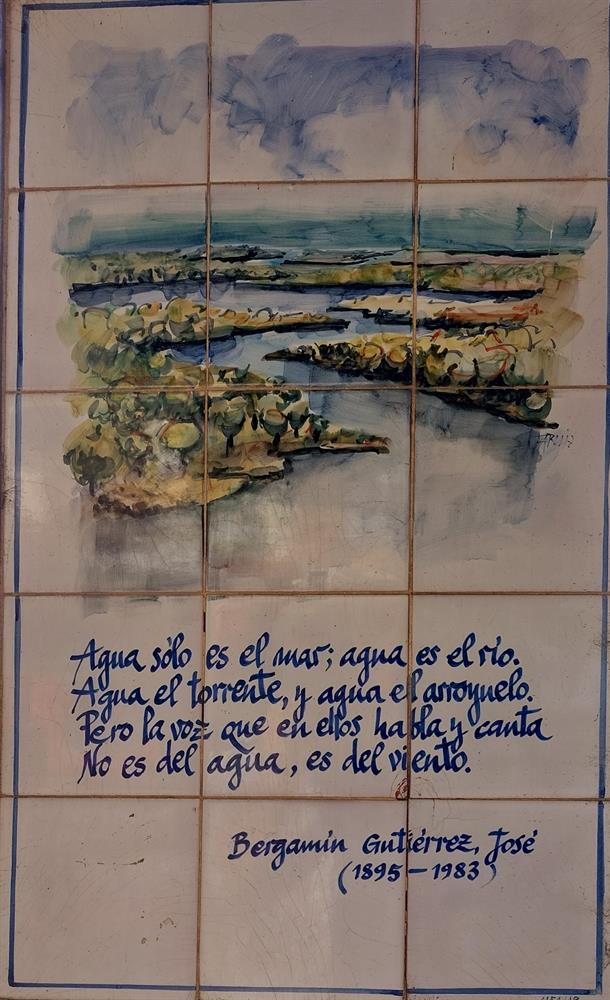 Agua sólo es el mar; agua es el río.
Agua el torrente, y agua el arroyuelo.
Pero la voz que en ellos habla y canta
No es del agua, es del viento.
Bergamín Gutiérrez, José
(1895-1983)